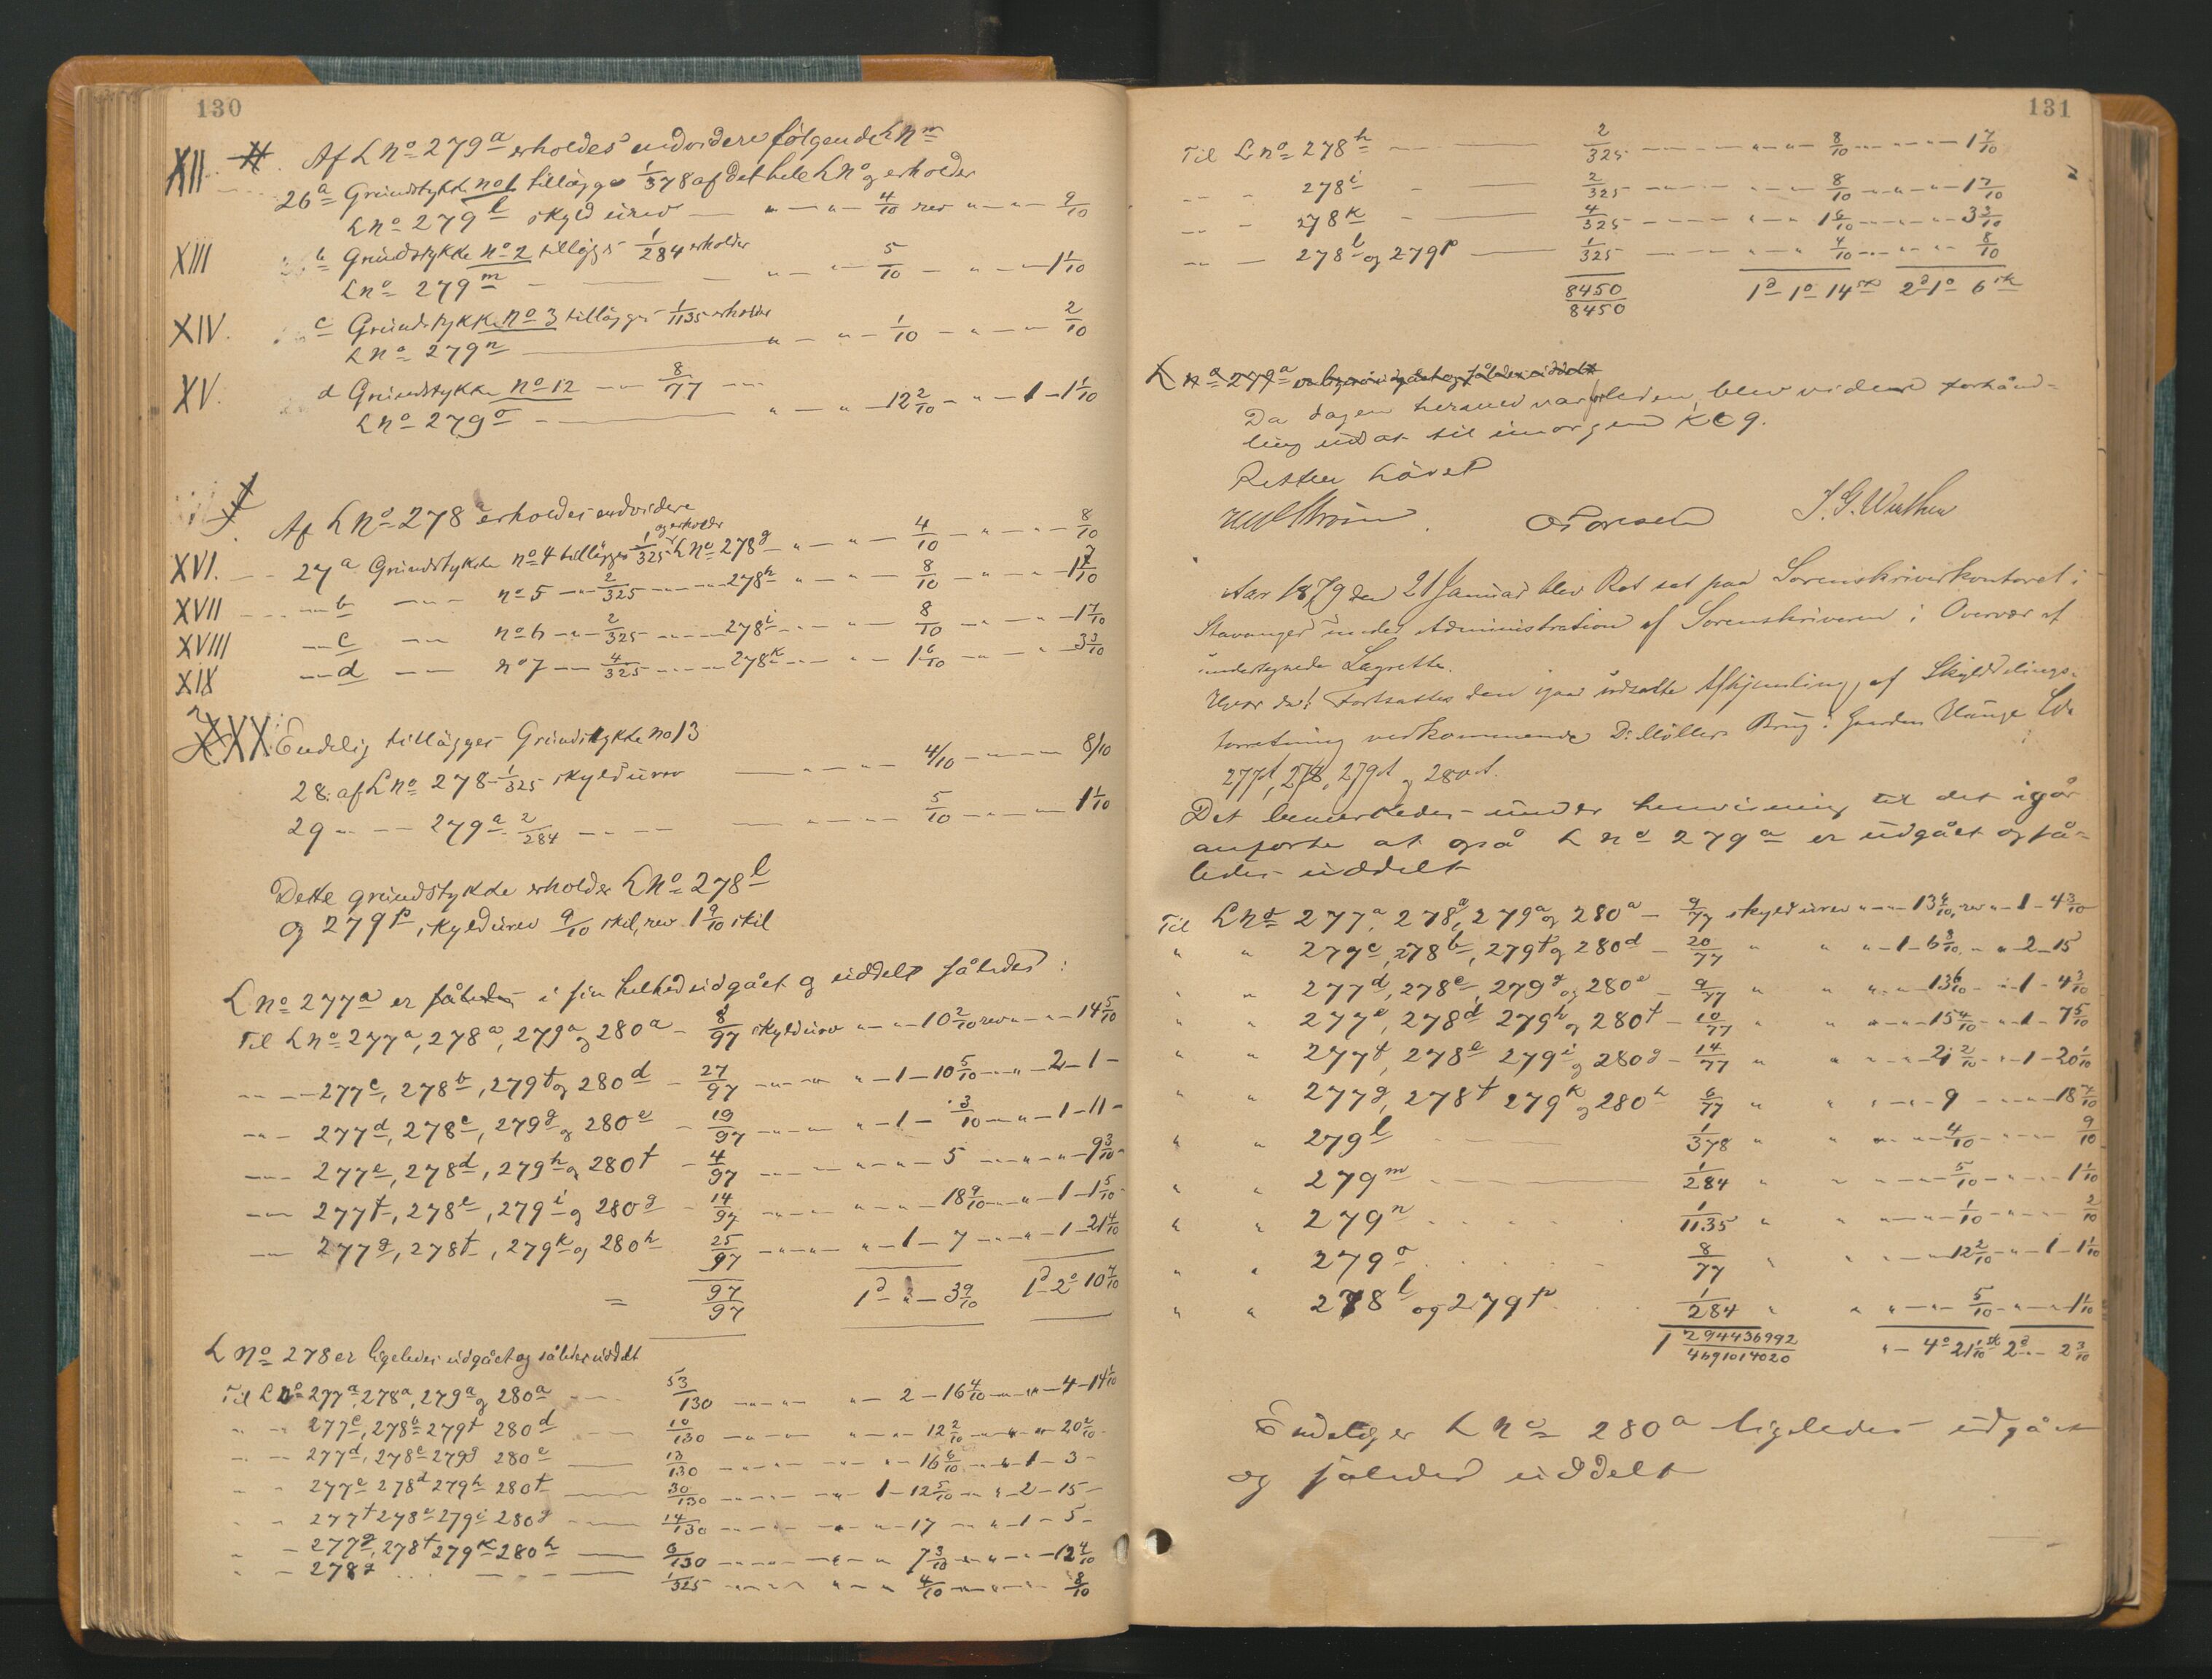 130
XII
Af L No 279a erholdes endvidere følgende L Nre
26a Grundstykke No 1 tillægges 1/378 af det hele L No og erholder
L No 279l skyld urev — " — " — 4/10 rev " — " — 9/10
XIII b Grundstykke No 2 tillægges 1/284 erholder
L No 279m — " — " — 5/10 — " — " — 1 1/10
XIV. c Grundstykke No 3 tillægges 1/1135 erholder
L No 279n — " — " — 1/10 — " — " — 2/10
XV. d Grundstykke No 12 — 8/77 —
L No 279o — " — " — 12 2/10 — " — 1 — 1 1/10
Af L No 278 erholdes endvidere
og erholder
XVI. 27a Grundstykke No 4 tillægges 1/325 L No 278g — " — " — 4/10 — " — " — 8/10
XVII — b — No 5 — 2/325 — 278h — " — " — 8/10 — " — " — 1 7/10
XVIII — c — No 6 — 2/325 — 278i — " — " — 8/10 — " — " — 1 7/10
XIX — d — No 7 — 4/325 — 278k — " — " — 1 6/10 — " — " — 3 3/10
XX. Endelig tillægges Grundstykke No 13
28. af L No 278 - 1/325 skyld urev — " — " — 4/10 — " — 8/10
29 — " — 279a 2/284 — " — " — 5/10 — " — 1 1/10
Dette grundstykke erholder L No 278l
og 279p, skyld urev 9/10 skil, rev 1 9/10 skil
L No 277a er i sin helhed udgået og uddelt således:
Til L No 277a, 278a, 279a og 280a — 8/97 skyld urev " — " — 10 2/10 rev " — " — 14 5/10
— " — 277c, 278b, 279f og 280d — 27/97 — " — 1 — 10 5/10 — " — 2 — 1 —
— " — 277d, 278c, 279g og 280e — 19/97 — " — 1 — 3/10 — " — 1 — 11 —
— " — 277e, 278d, 279h og 280f — 4/97 — " — " — 5 — " — " — 9 3/10
— " — 277f, 278e, 279i og 280g — 14/97 — " — " — 18 9/10 — " — 1 — 1 5/10
— " — 277g, 278f, 279k og 280h 25/97 — " — 1 — 7 — " — 1 — 21 4/10
= 97/97 1d " — 3 9/10 1d 2o 10 7/10
L No 278 er ligeledes udgået og således uddelt
Til L No 277a, 278a, 279a og 280a 53/130 — " — 2 — 16 4/10 — " — 4 — 14 1/10
" — 277c, 278b 279f 280d 10/130 — " — " — 12 2/10 — " — " — 20 2/10
" — 277d, 278c 279g 280e 13/130 — " — " — 16 6/10 — " — 1 — 3 —
" — 277e 278d 279h 280f 30/130 — " — 1 — 12 5/10 — " — 2 — 15 —
" — 277f 278e 279i 280g 14/130 — " — " — 17 — " — 1 — 5 —
" — 277g, 278f 279k 280h 6/130 — " — " — 7 3/10 — " — " — 12 4/10
" — 278g 1/325 — " — " — 4/10 — " — " — 8/10
131
Til L No 278h — 2/325 — " — " — 8/10 — " — " — 1 7/10
" — 278i — 2/325 — " — " — 8/10 — " — " — 1 7/10
" — 278k — 4/325 — " — " — 1 6/10 — " — " — 3 3/10
" — 278l og 279p — 1/325 — " — " — 4/10 — " — " — 8/10
8450/8450 1d 1o 14 sk 2d 1o 6 sk
L No 279a
Da dagen hermed var forleden, blev videre forhand-
ling udsat til imorgen Kl 9.
Retten hævet
J. G. Wathen
Aar 1879 den 21 Januar blev Ret sat paa Sorenskriverkontoret i
Stavanger under Administration af Sorenskriveren i Overvær af
undertegnede Lagrette.
Hvor da! Fortsattes den igaar udsatte Afhjemling af Skylddelings-
forretning vedkommende Dr. Møllers Brug i Gaarden Hauge L No
277a, 278, 279a og 280a.
Det bemærkedes under henvisning til det igår
anførte at også L No 279a er udgået og så-
ledes uddelt
Til L No 277a, 278a, 279a og 280a — 9/77 skyld urev " — " — 13 6/10, rev " — 1 — 4 3/10
" " 277c, 278b, 279f og 280d — 20/77 " " " — 1 — 6 3/10 — " — 2 — 15
" " 277d, 278c, 279g og 280e — 9/77 " " " — " — 13 6/10 — " — 1 — 4 3/10
" " 277e, 278d 279h og 280f — 10/77 " " " — " — 15 4/10 — " — 1 — 7 5/10
" " 277f, 278e 279i og 280g — 14/77 " " " — " — 21 2/10 — " — 1 — 20 1/10
" " 277g, 278f 279k og 280h 6/77 " " " — " — 9 — " — " — 18 7/10
" " 279l — 1/378 " " " — " — 4/10 — " — " — 9/10
" " 279m — 1/284 " " " — " — 5/10 — " — " — 1 1/10
" " 279n 1/1135 " " " — " — 1/10 — " — " — 2/10
" " 279o 8/77 " " " — " — 12 2/10 — " — 1 — 1 1/10
" " 278l og 279p 1/284 " " " — " — 5/10 — " — " — 1 1/10
1 294436992/4691014020 " — 4o 21 1/10 sk 2d " — 2 3/10
Endelig er L No 280a ligeledes udgået
og således uddelt